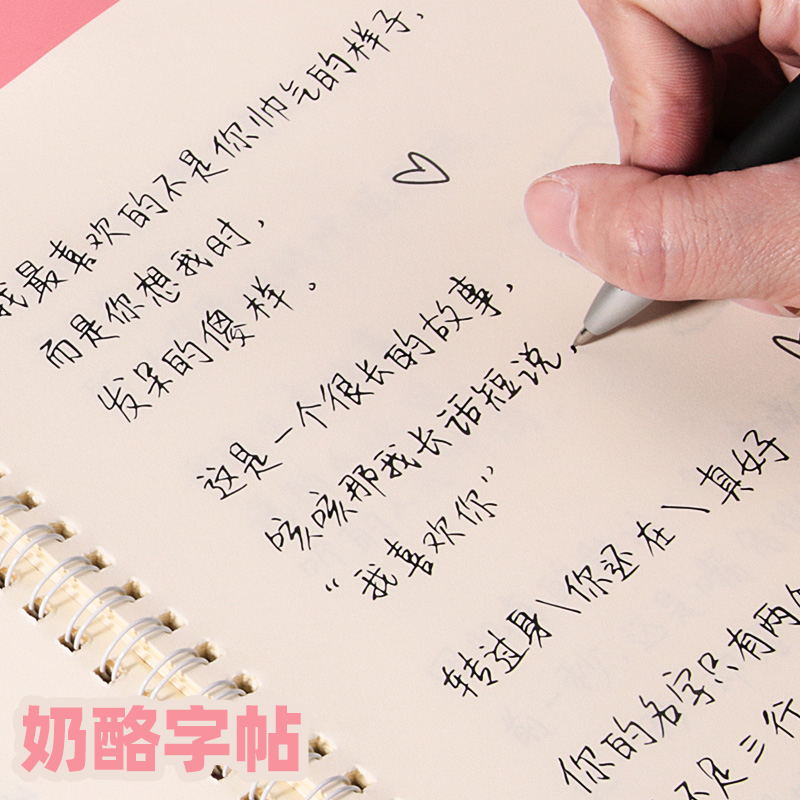 我最喜欢的不是你帅气的样子，
而是你想我时，
发呆的傻样。
这是一个很长的故事，
咳咳那我长话短说，
“我喜欢你”
转过身\你还在\真好
你的名字只有两
不是三行
奶酪字帖